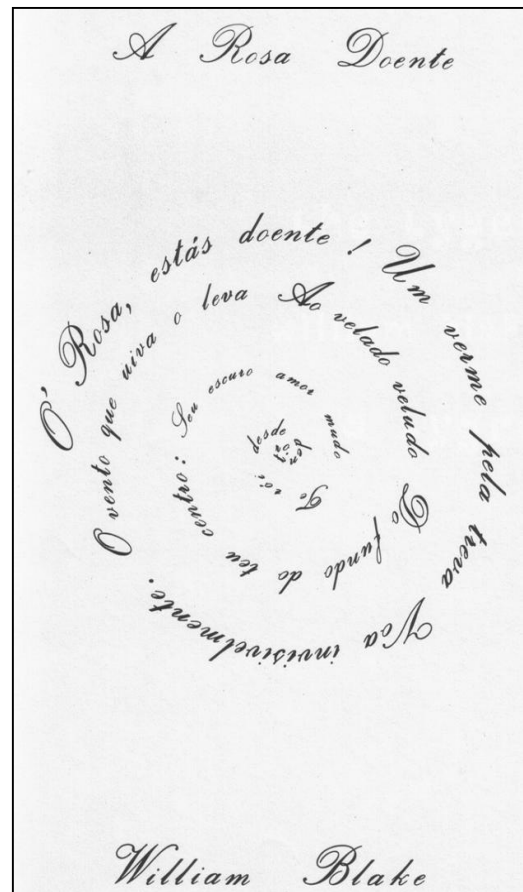 A Rosa Doente
Ó Rosa, estás doente! Um verme pela treva Voa invisivelmente. O vento que uiva o leva Ao velado veludo Do fundo do teu centro: Seu escuro amor mudo Te rói desde dentro
William Blake